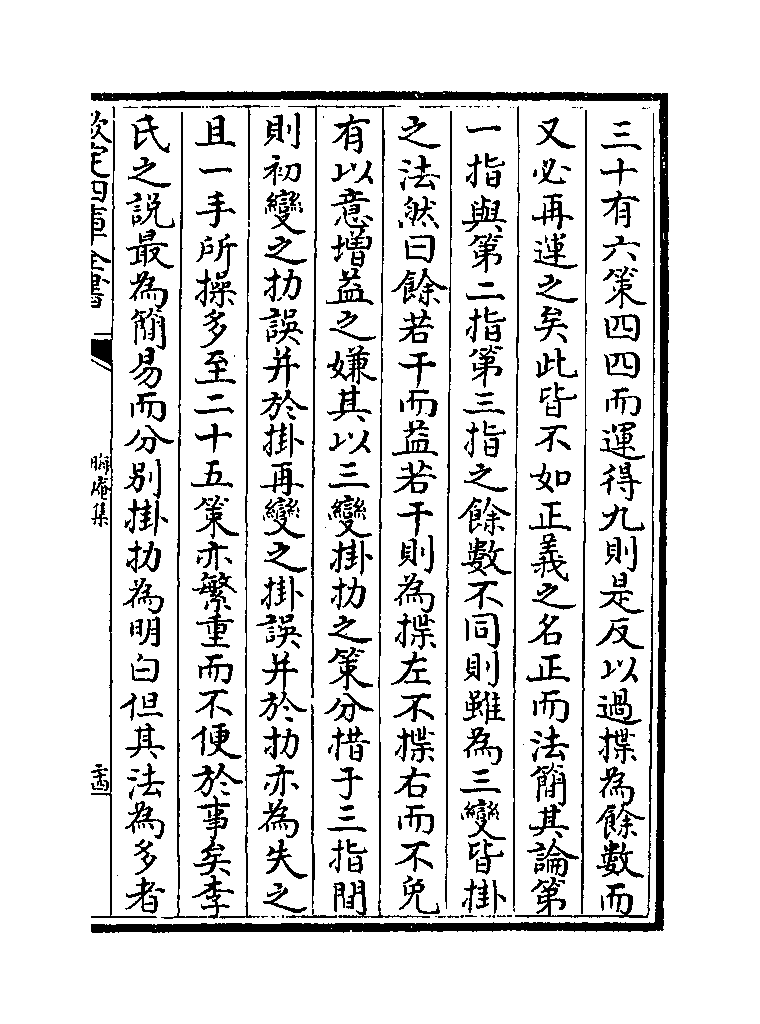 三十有六策四四而運得九則是反以過揲為餘數而
又必再運之矣此皆不如正義之名正而法簡其論第
一指與第二指第三指之餘數不同則雖為三變皆掛
之法然曰餘若干而益若干則為揲左不揲右而不免
有以意增益之嫌其以三變掛扐之策分措于三指間
則初變之扐誤并於掛再變之掛誤并於扐亦為失之
且一手所操多至二十五策亦繁重而不便於事矣李
氏之説最為簡易而分別掛扐為明白但其法為多者
欽定四庫全書
晦庵集